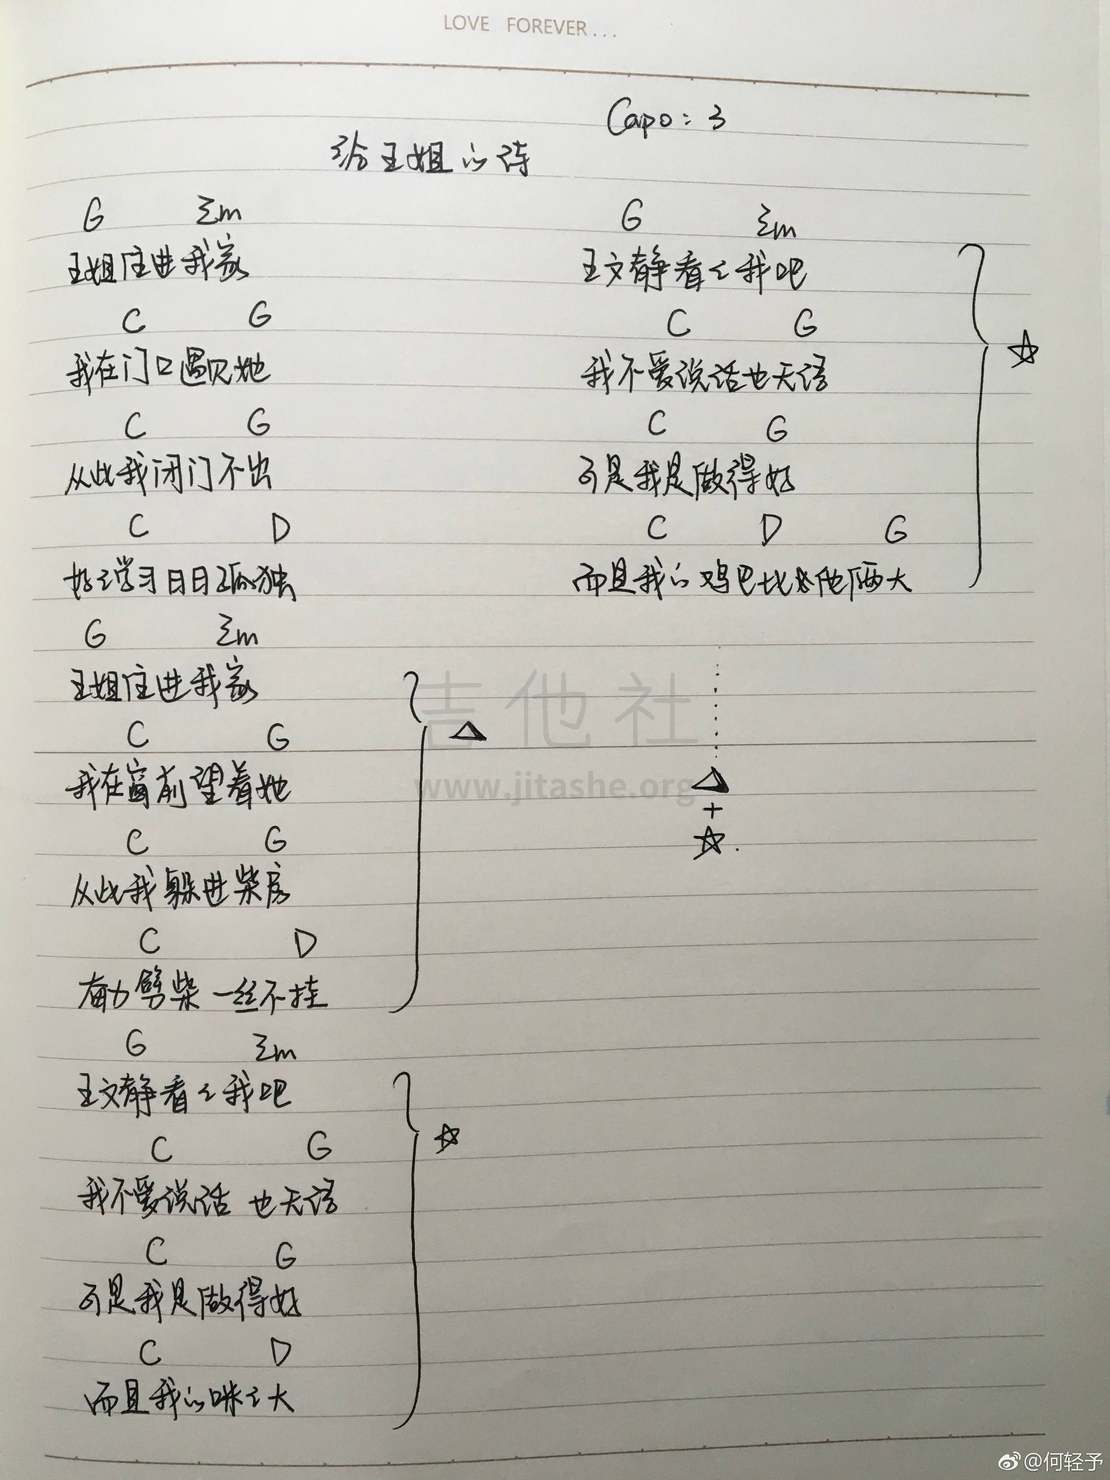 LOVE FOREVER...
Capo：3
给王姐的诗
G Em
王姐住进我家
C G
我在门口遇见她
C G
从此我闭门不出
C D
好好学习日日孤独
G Em
王姐住进我家
C G
我在窗前望着她
C G
从此我躲进柴房
C D
奋力劈柴 一丝不挂
G Em
王文静看看我吧
C G
我不爱说话 也无语
C G
可是我是做得好
C D
而且我的咪咪大
G Em
王文静看看我吧
C G
我不爱说话也无语
C G
可是我是做得好
C D G
而且我的鸡巴比其他俩大
吉他社
www.jitashe.org
+
@何轻予